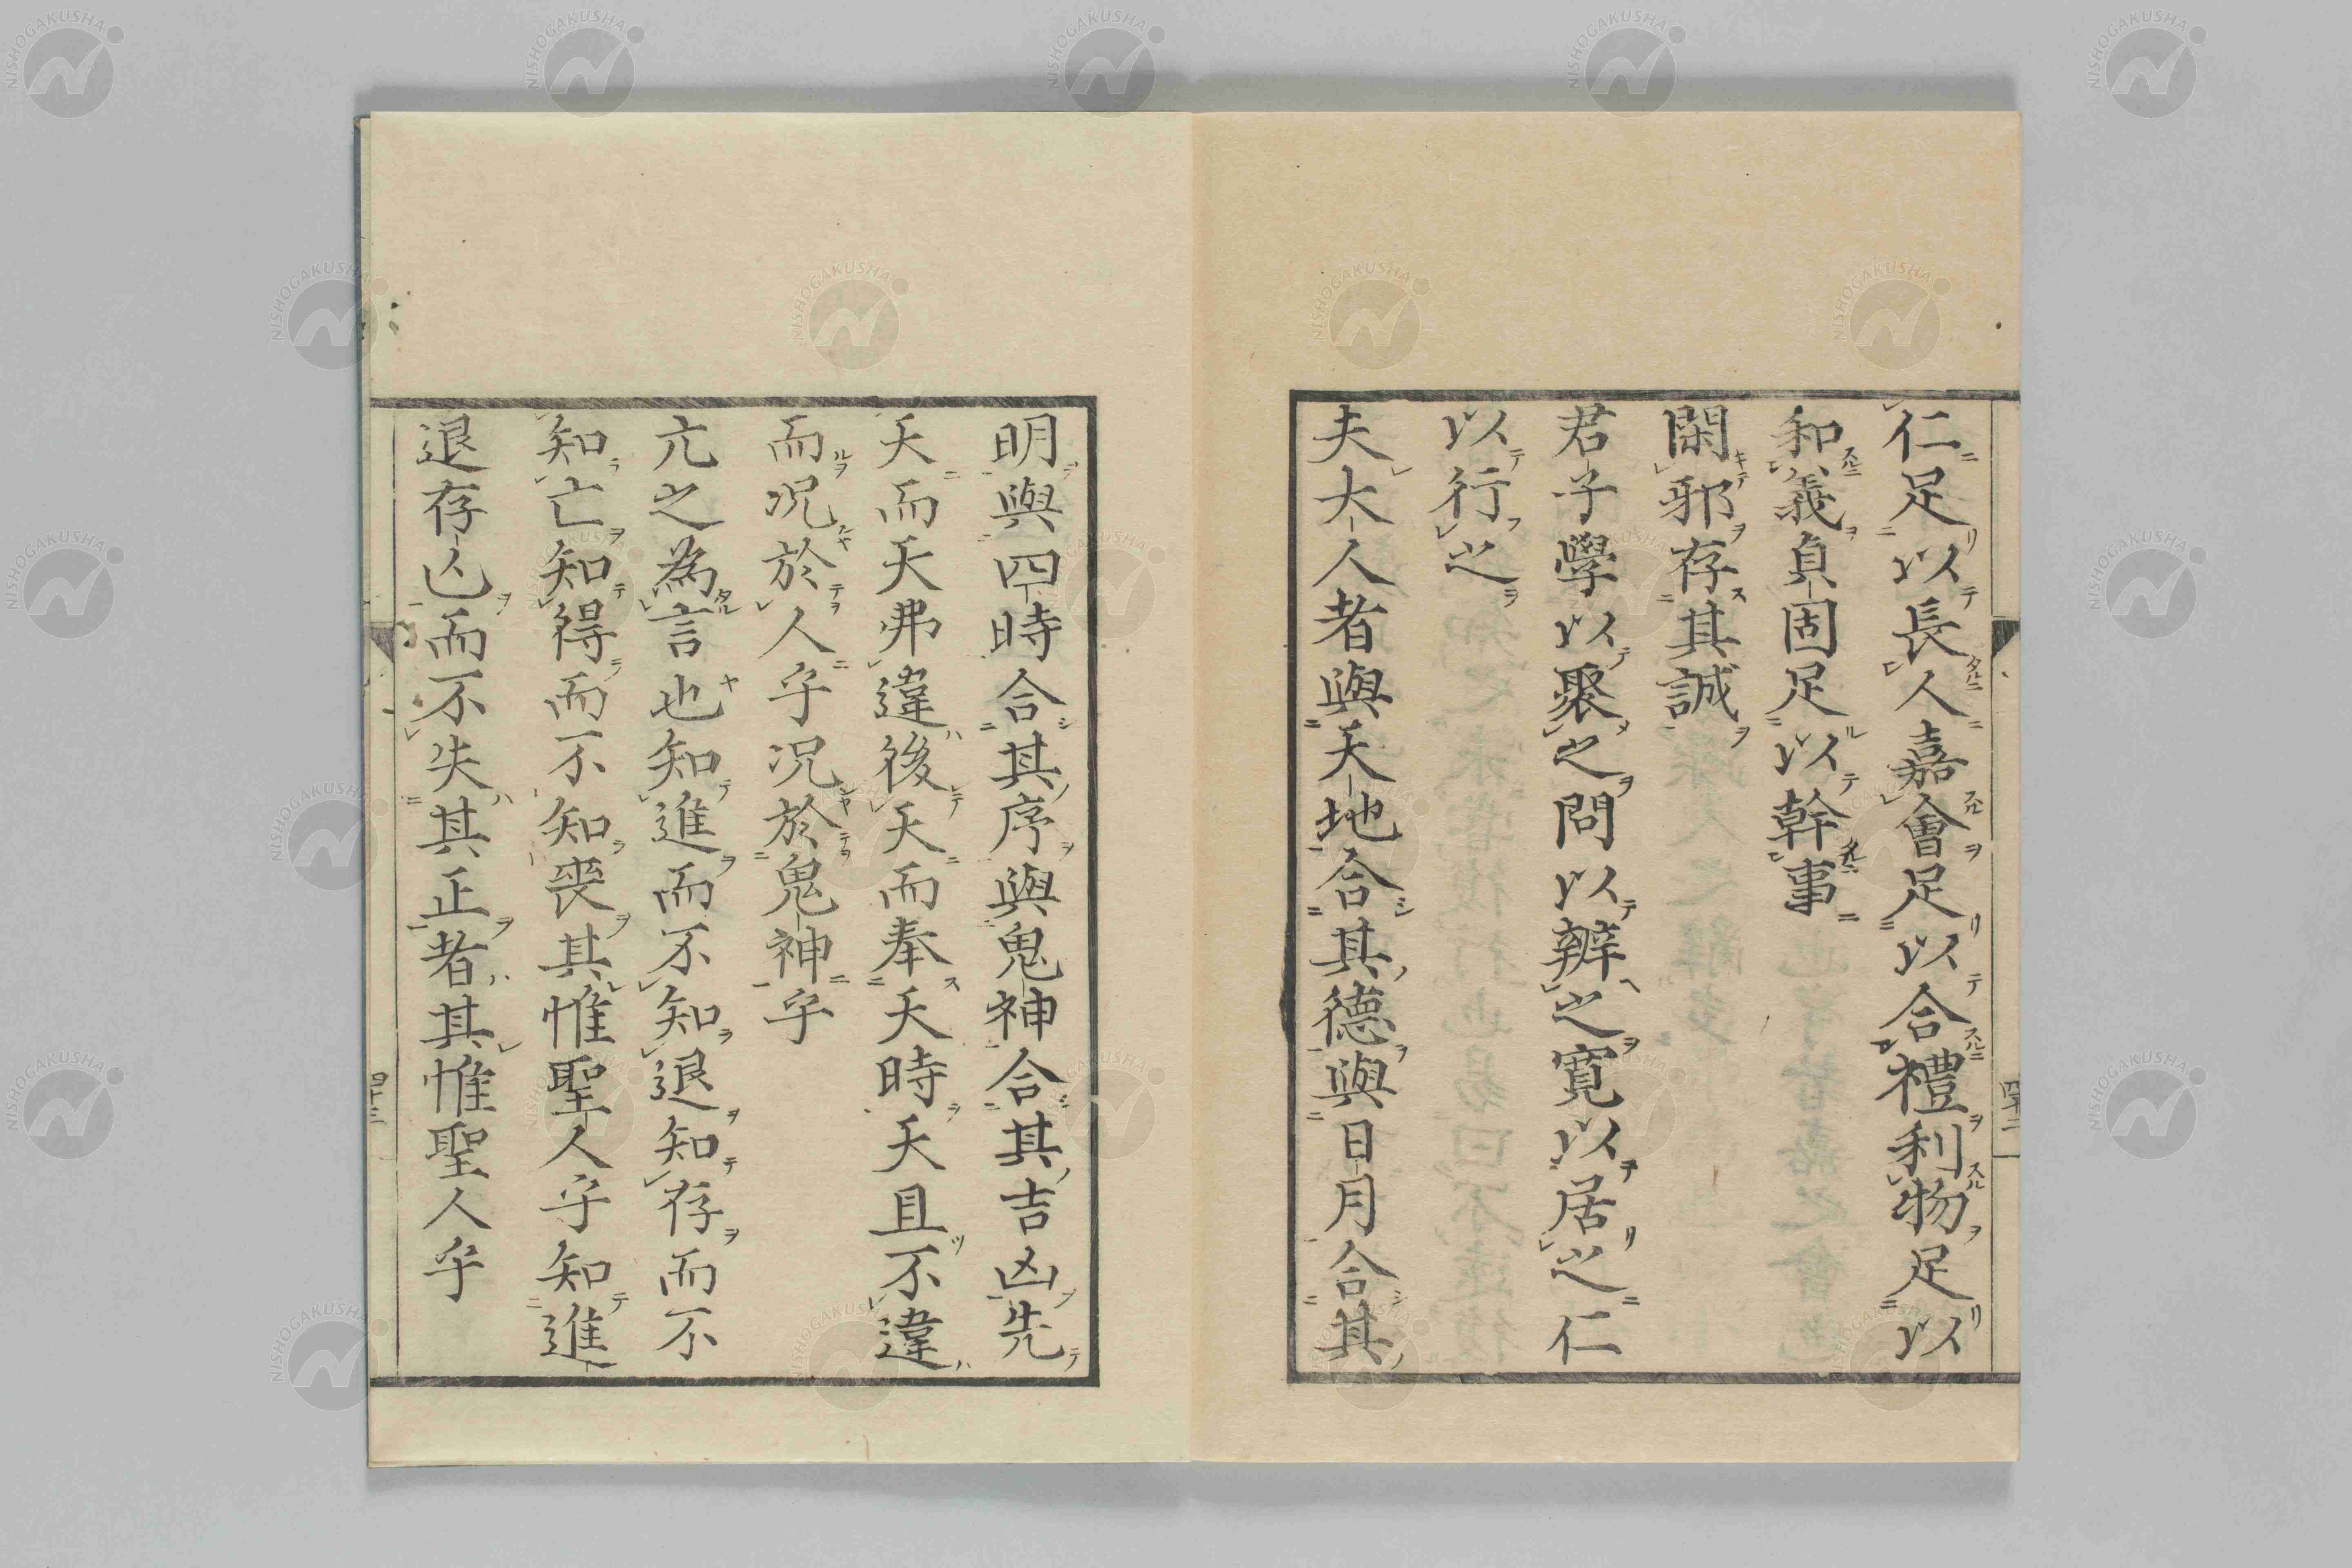 仁足以長人嘉會足以合禮利物足以
和義貞固足以幹事
閑邪存其誠
君子學以聚之問以辨之寬以居之仁
以行之
夫大人者與天地合其德與日月合其
明與四時合其序與鬼神合其吉凶先
天而天弗違後天而奉天時天且不違
而况於人乎况於鬼神乎
亢之為言也知進而不知退知存而不
知亡知得而不知喪其惟聖人乎知進
退存亡而不失其正者其惟聖人乎
四十二
四十三
NISHOGAKUSHA